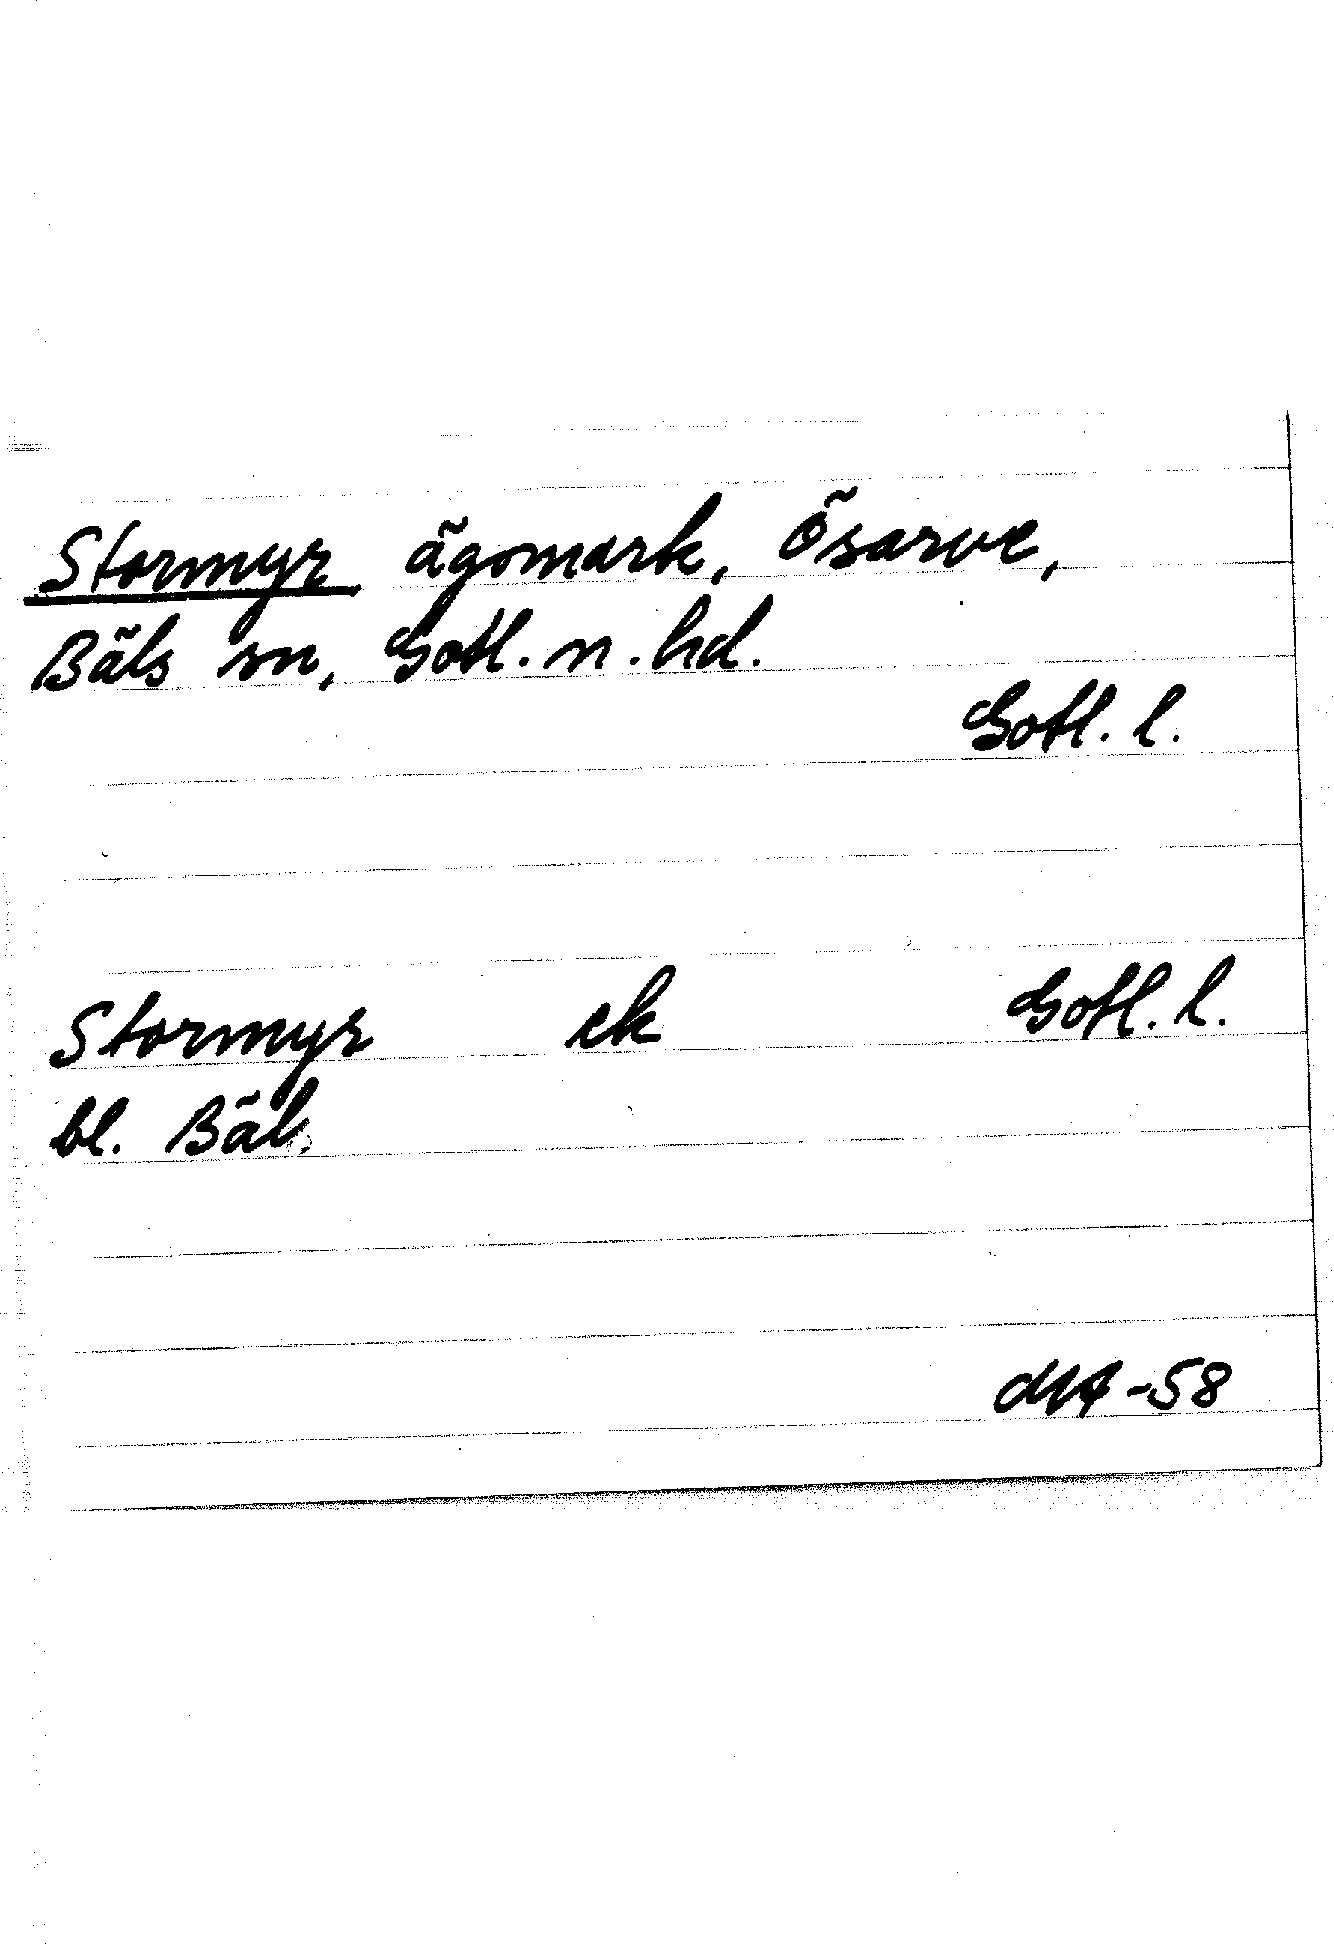 Stormyr ägomark, Ösarve,
Bäls sn, Gotl. n. hd.
Gotl. l.
Stormyr ek Gotl. l.
bl. Bäl.
-58